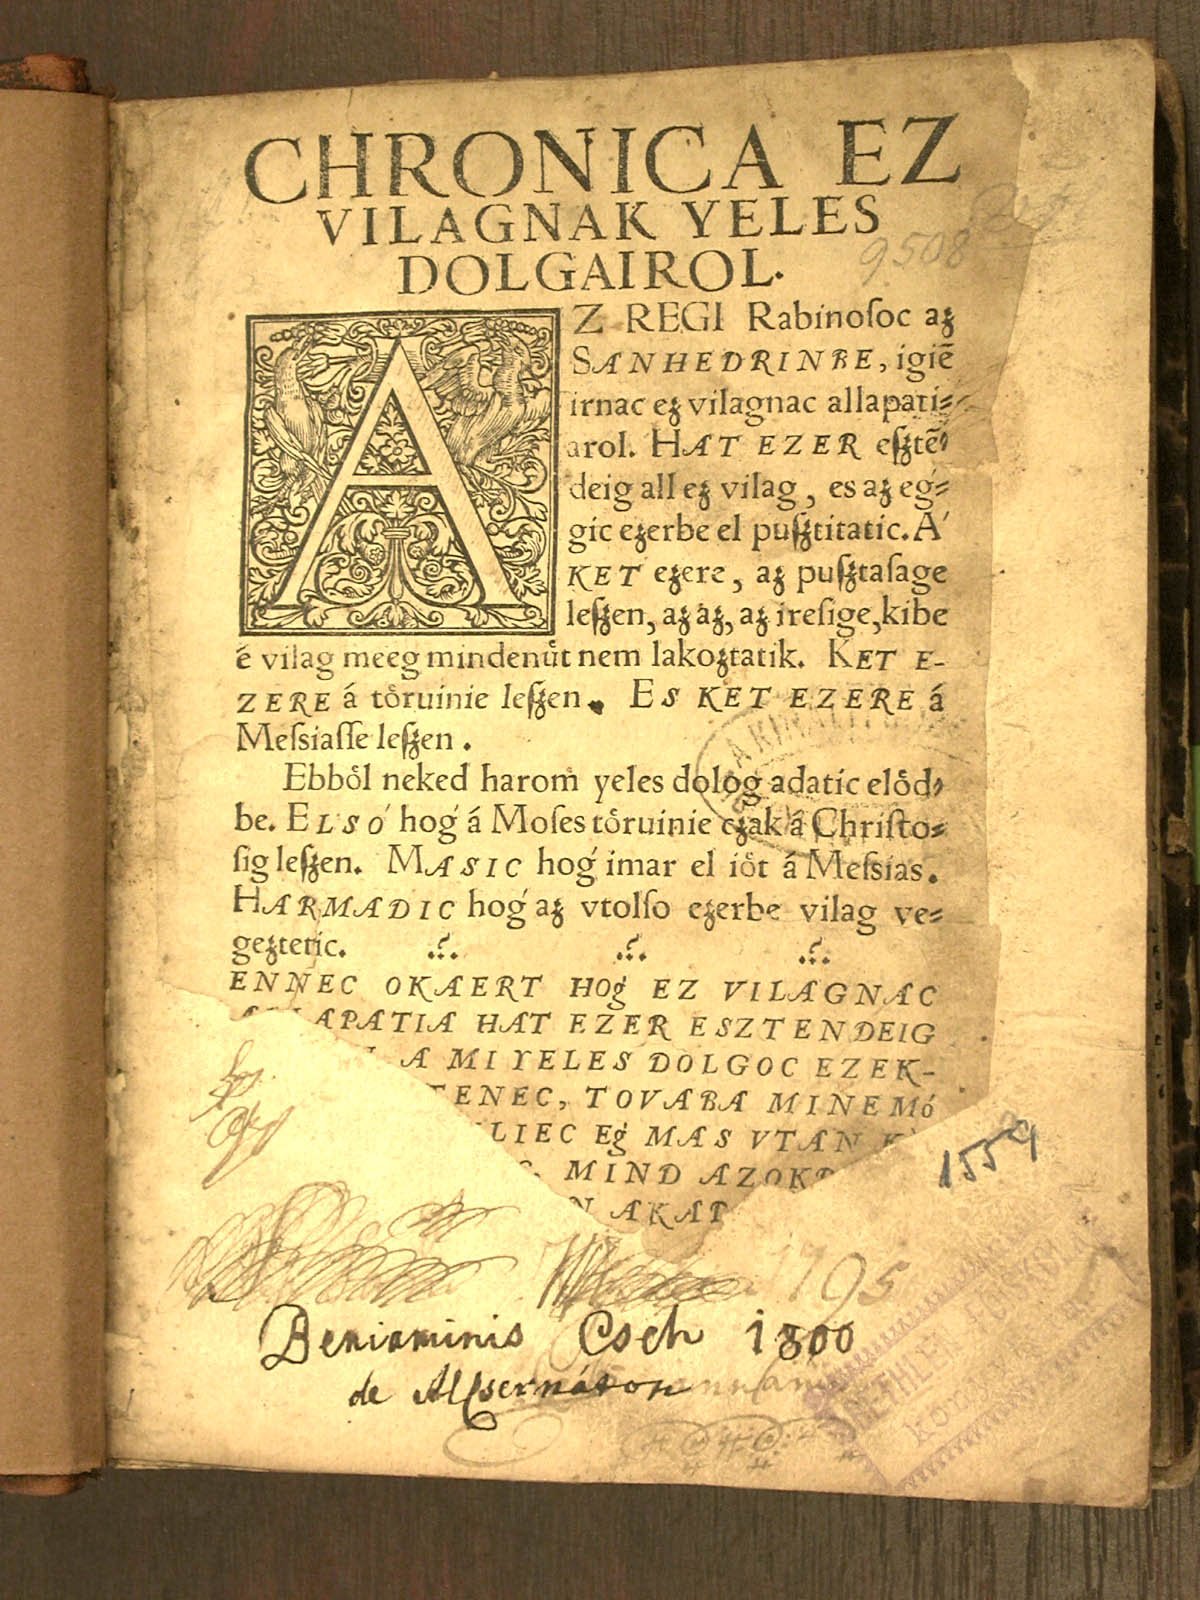 CHRONICA EZ
VILAGNAK YELES
DOLGAIROL.
9508
AZ REGI Rabinoſoc aʒ
SANHEDRINBE, igiē
irnac eʒ vilagnac allapati⸗
arol. HAT EZER eſʒtē⸗
deig all eʒ vilag, es aʒ eǵ⸗
gic eʒerbe el puſʒtitatic. Á
KET eʒere, aʒ puſʒtaſage
leſʒen, aʒ áʒ, aʒ ireſige, kibe
é vilag meeg mindenuͤt nem lakoʒtatik. KET E-
ZERE á toͤruinie leſʒen. ES KET EZERE á
Meſsiaſſe leſʒen.
Ebboͤl neked harom yeles dolog adatic eloͤd⸗
be. ELSÓ hoǵ á Moſes toͤruinie cʒak á Chriſto⸗
ſig leſʒen. MASIC hoǵ imar el ioͤt á Meſsias.
HARMADIC hoǵ aʒ vtolſo eʒerbe vilag ve⸗
geʒtetic.
ENNEC OKAERT HOǵ EZ VILAGNAC
APATIA HAT EZER ESZTENDEIG
A MI YELES DOLGOC EZEK-
TENEC, TOVABA MINEMó
LIEC Eǵ MAS VTAN
MIND AZOK
AKAR
1559
1795
Beniaminis Cseh 1800
de Alsernáton